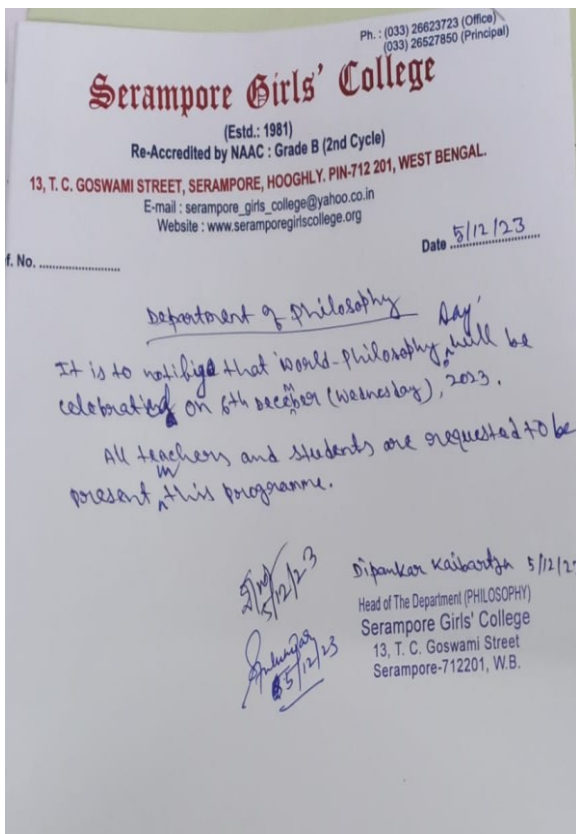 Ph. : (033) 26623723 (Office)
(033) 26527850 (Principal)
Serampore Girls' College
(Estd.: 1981)
Re-Accredited by NAAC : Grade B (2nd Cycle)
13, T. C. GOSWAMI STREET, SERAMPORE, HOOGHLY. PIN-712 201, WEST BENGAL.
E-mail : serampore_girls_college@yahoo.co.in
Website : www.seramporegirlscollege.org
f. No. ....................
Date 5/12/23
Department of Philosophy
It is to notify that 'World-Philosophy Day' will be
celebrated on 6th December (Wednesday), 2023.
All teachers and students are requested to be
present in this programme.
5/12/23
Dipankar Kaibartya 5/12/2
Head of The Department (PHILOSOPHY)
Serampore Girls' College
13, T. C. Goswami Street
Serampore-712201, W.B.
5/12/23